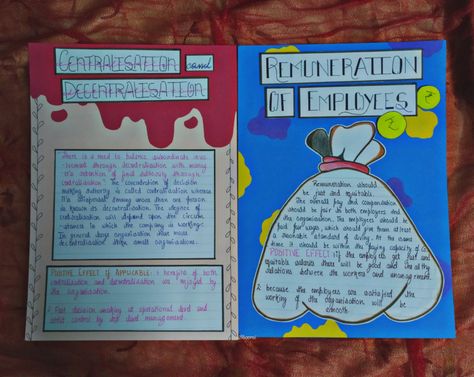 CENTRALISATION and
DECENTRALISATION
There is a need to balance subordinate invo
-lvement through decentralisation with manag
-er's retention of final authority through
centralisation". The concentration of decision
making authority is called centralisation whereas
its dispersal among more than one person
is known as decentralisation. The degree of
centralisation will depend upon the circum
-stances in which the company is working.
In general large organisations have more
decentralisation than small organisations.
POSITIVE EFFECT IF APPLICABLE: 1. benefits of both
centralisation and decentralisation are enjoyed by
the organisation.
2. Fast decision making at operational level and
strict control by top level management.
REMUNERATION
OF EMPLOYEES
Remuneration should
be just and equitable.
The overall pay and compensation
should be fair to both employees and
the organisation. The employees should be
paid fair wages, which should give them at least
a reasonable standard of living. At the same
time it should be within the paying capacity of
POSITIVE EFFECT: if the employees get just and
equitable salaries then there will be good and healthy
relations between the workers and management.
2. because the employees are satisfied the
working of the organisation will be
smooth